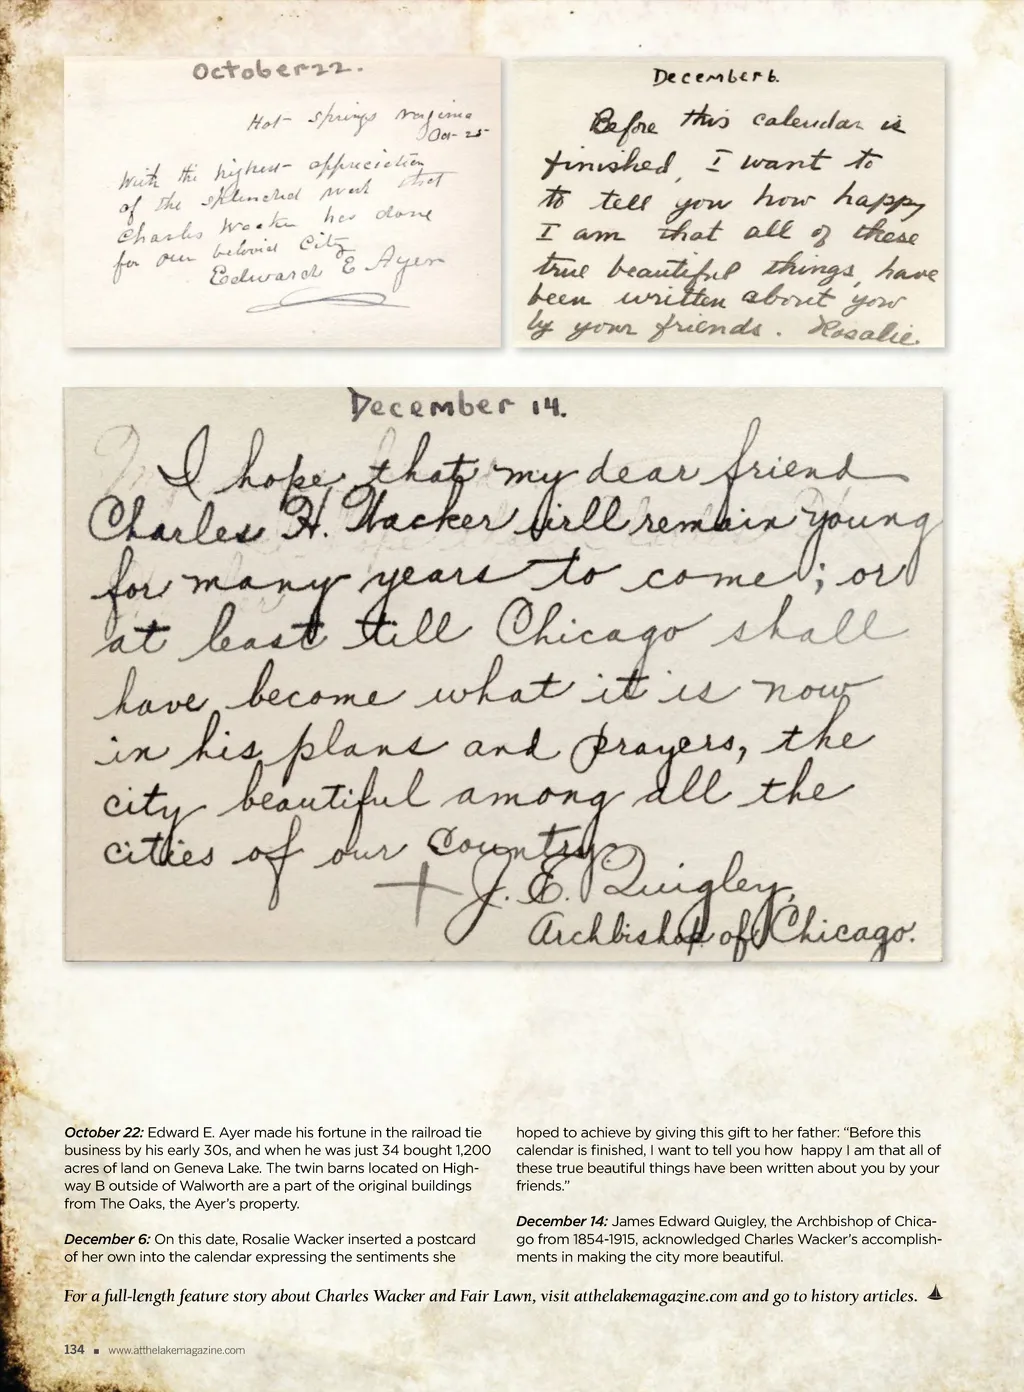 October 22.
Hot Springs Virginia
Oct 25
With the highest appreciation
of the splendid work that
Charles Wacker has done
for our beloved City
Edward E Ayer
December 6.
Before this calendar is
finished, I want to
to tell you how happy
I am that all of these
true beautiful things, have
been written about you
by your friends. Rosalie.
December 14.
I hope that my dear friend
Charles H. Wacker will remain young
for many years to come; or
at least till Chicago shall
have become what it is now
in his plans and prayers, the
city beautiful among all the
cities of our country.
J. E. Quigley,
Archbishop of Chicago.
October 22: Edward E. Ayer made his fortune in the railroad tie
business by his early 30s, and when he was just 34 bought 1,200
acres of land on Geneva Lake. The twin barns located on High-
way B outside of Walworth are a part of the original buildings
from The Oaks, the Ayer's property.
December 6: On this date, Rosalie Wacker inserted a postcard
of her own into the calendar expressing the sentiments she
hoped to achieve by giving this gift to her father: “Before this
calendar is finished, I want to tell you how happy I am that all of
these true beautiful things have been written about you by your
friends.”
December 14: James Edward Quigley, the Archbishop of Chica-
go from 1854-1915, acknowledged Charles Wacker's accomplish-
ments in making the city more beautiful.
For a full-length feature story about Charles Wacker and Fair Lawn, visit atthelakemagazine.com and go to history articles.
134 ■ www.atthelakemagazine.com